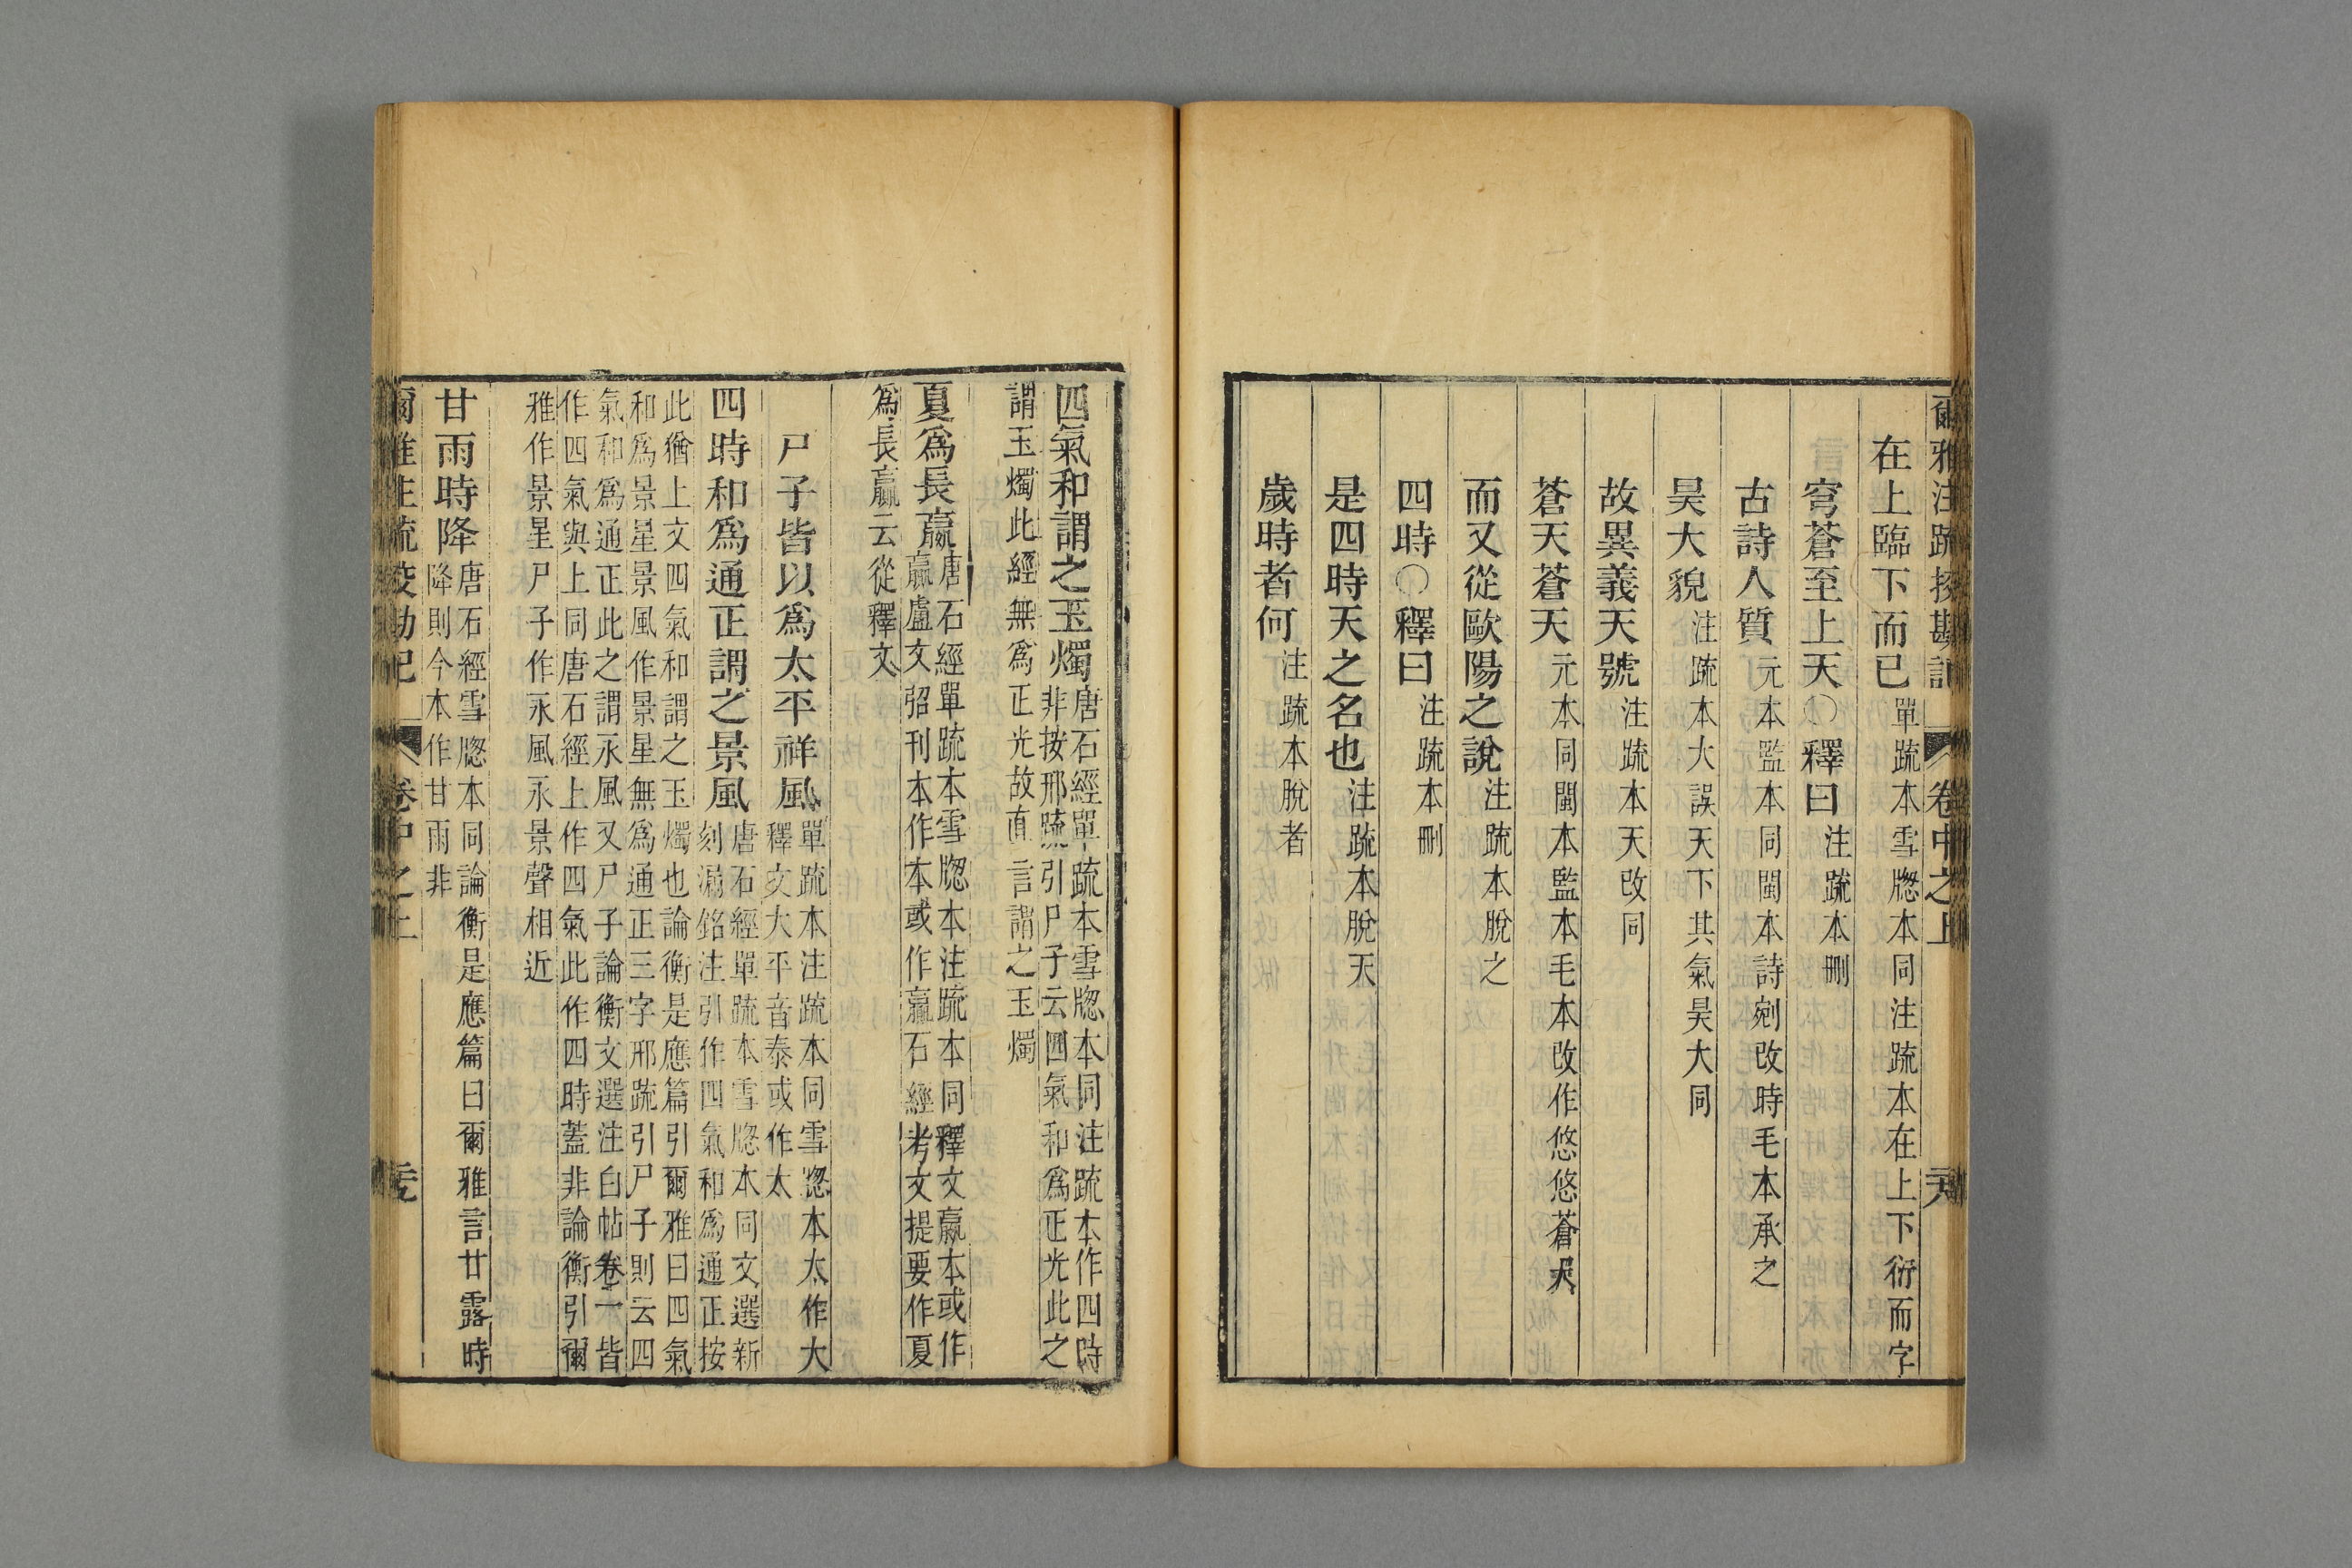 爾雅注疏挍勘記 卷中之上
在上臨下而已單疏本雪牎本同注疏本在上下衍而字
穹蒼至上天〇釋曰注疏本刪
古詩人質元本監本同閩本詩剜改時毛本承之
昊大貌注疏本大誤天下其氣昊大同
故異義天號注疏本天改同
蒼天蒼天元本同閩本監本毛本改作悠悠蒼天
而又從歐陽之說注疏本脫之
四時〇釋曰注疏本刪
是四時天之名也注疏本脫天
歲時者何注疏本脫者
四氣和謂之玉燭唐石經單疏本雪牎本同注疏本作四時
非按邢疏引尸子云四氣和爲正光此之
謂玉燭此經無爲正光故直言謂之玉燭
夏爲長嬴唐石經單疏本雪牎本注疏本同釋文嬴本或作
贏盧文弨刊本作本或作贏石經考文提要作夏
爲長贏云從釋文
尸子皆以爲太平祥風單疏本注疏本同雪牎本太作大
釋文大平音泰或作太
四時和爲通正謂之景風唐石經單疏本雪牎本同文選新
刻漏銘注引作四氣和爲通正按
此猶上文四氣和謂之玉燭也論衡是應篇引爾雅曰四氣
和爲景星景風作景星無爲通正三字邢疏引尸子則云四
氣和爲通正此之謂永風又尸子論衡文選注白帖卷一皆
作四氣與上同唐石經上作四氣此作四時蓋非論衡引爾
雅作景星尸子作永風永景聲相近
甘雨時降唐石經雪牎本同論衡是應篇曰爾雅言甘露時
降則今本作甘雨非
爾雅注疏挍勘記 卷中之上